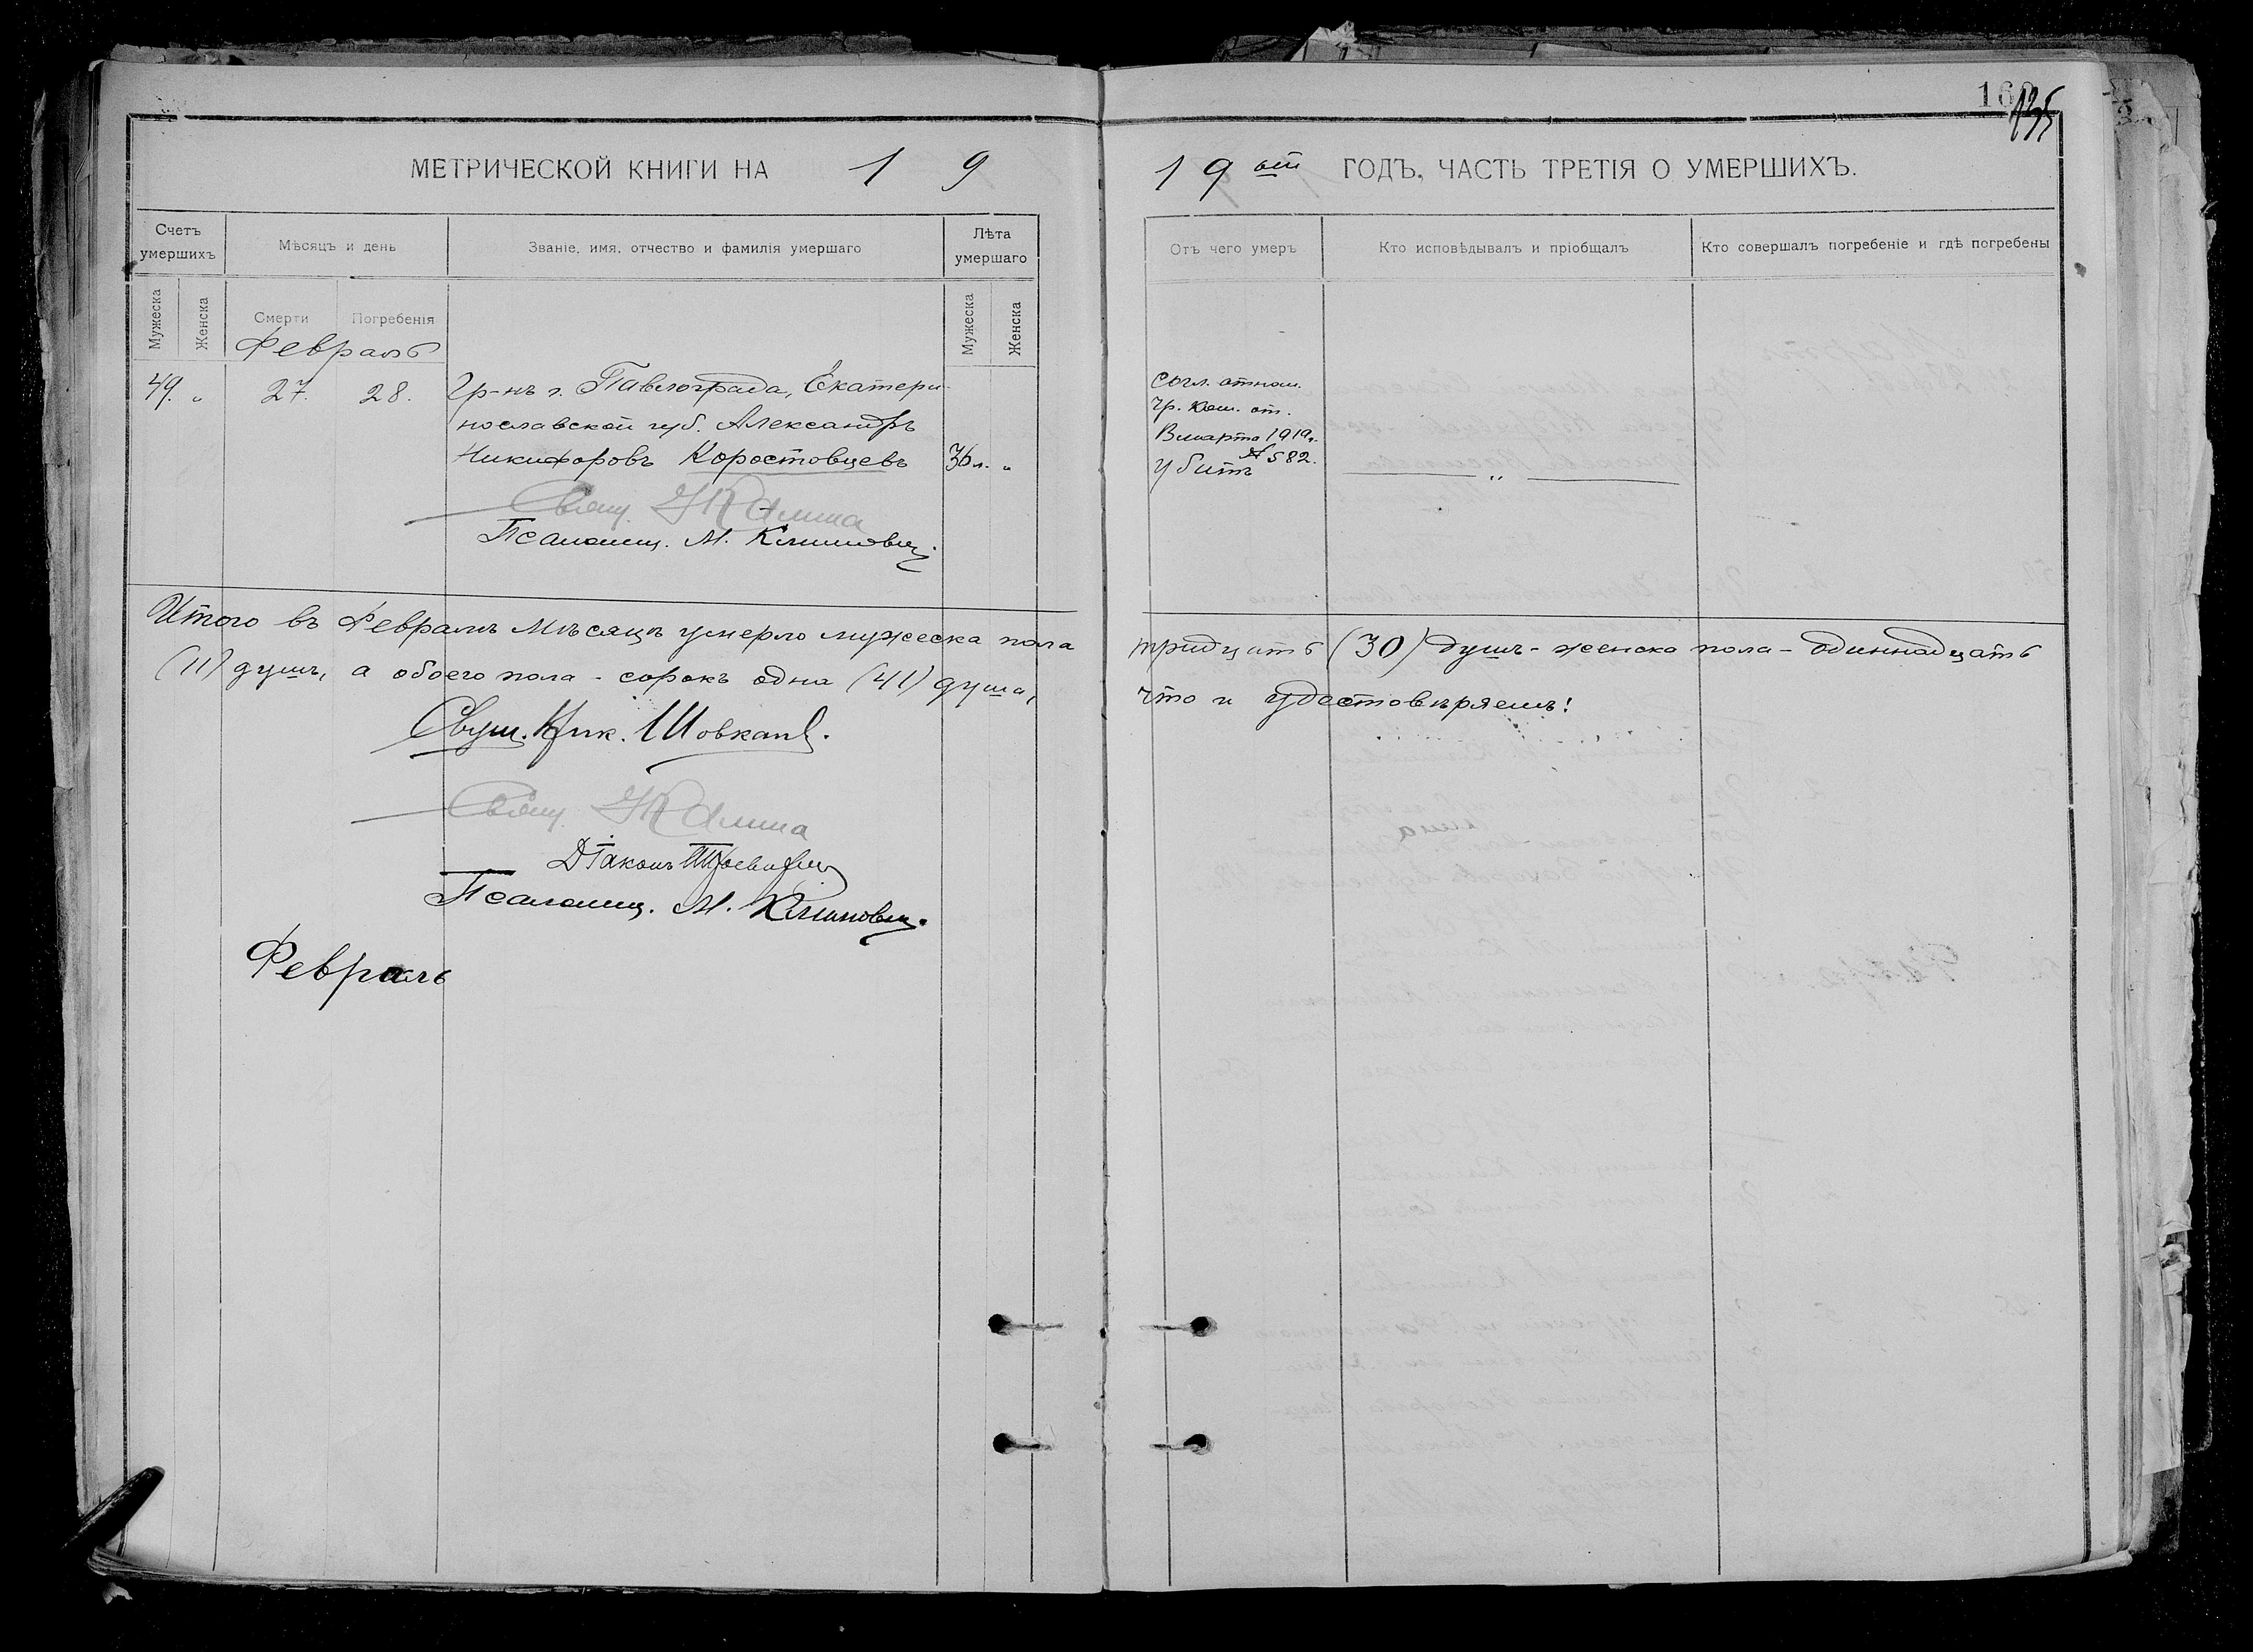 160
135
МЕТРИЧЕСКОЙ КНИГИ НА 1 9
19 ый ГОДЪ, ЧАСТЬ ТРЕТІЯ О УМЕРШИХЪ.
Счетъ умершихъ
Мѣсяцъ и день
Званіе, имя, отчество и фамилія умершаго
Лѣта умершаго
Отъ чего умеръ
Кто исповѣдывалъ и пріобщалъ
Кто совершалъ погребеніе и гдѣ погребены
Мужеска
Женска
Смерти
Погребенія
Мужеска
Женска
Февраль
49. " 27. 28. Гр-нъ г. Павлограда, Екатери-
нославской губ. Александръ
Никифоровъ Коростовцевъ 36 л. "
Свящ. Калина
Псаломщ. М. Климович
согл. отнош.
гр. ком. от.
8 марта 1919 г.
№ 582.
убитъ
"
Итого въ Февралѣ мѣсяцѣ умерло мужеска пола тридцать (30) душъ - женска пола - одиннадцать
(11) душъ, а обоего пола - сорокъ одна (41) душа, что и удостовѣряемъ!
Свящ. Ник. Шовкап
Свящ. Калина
Діаконъ
Псаломщ. М. Климович.
Февраль